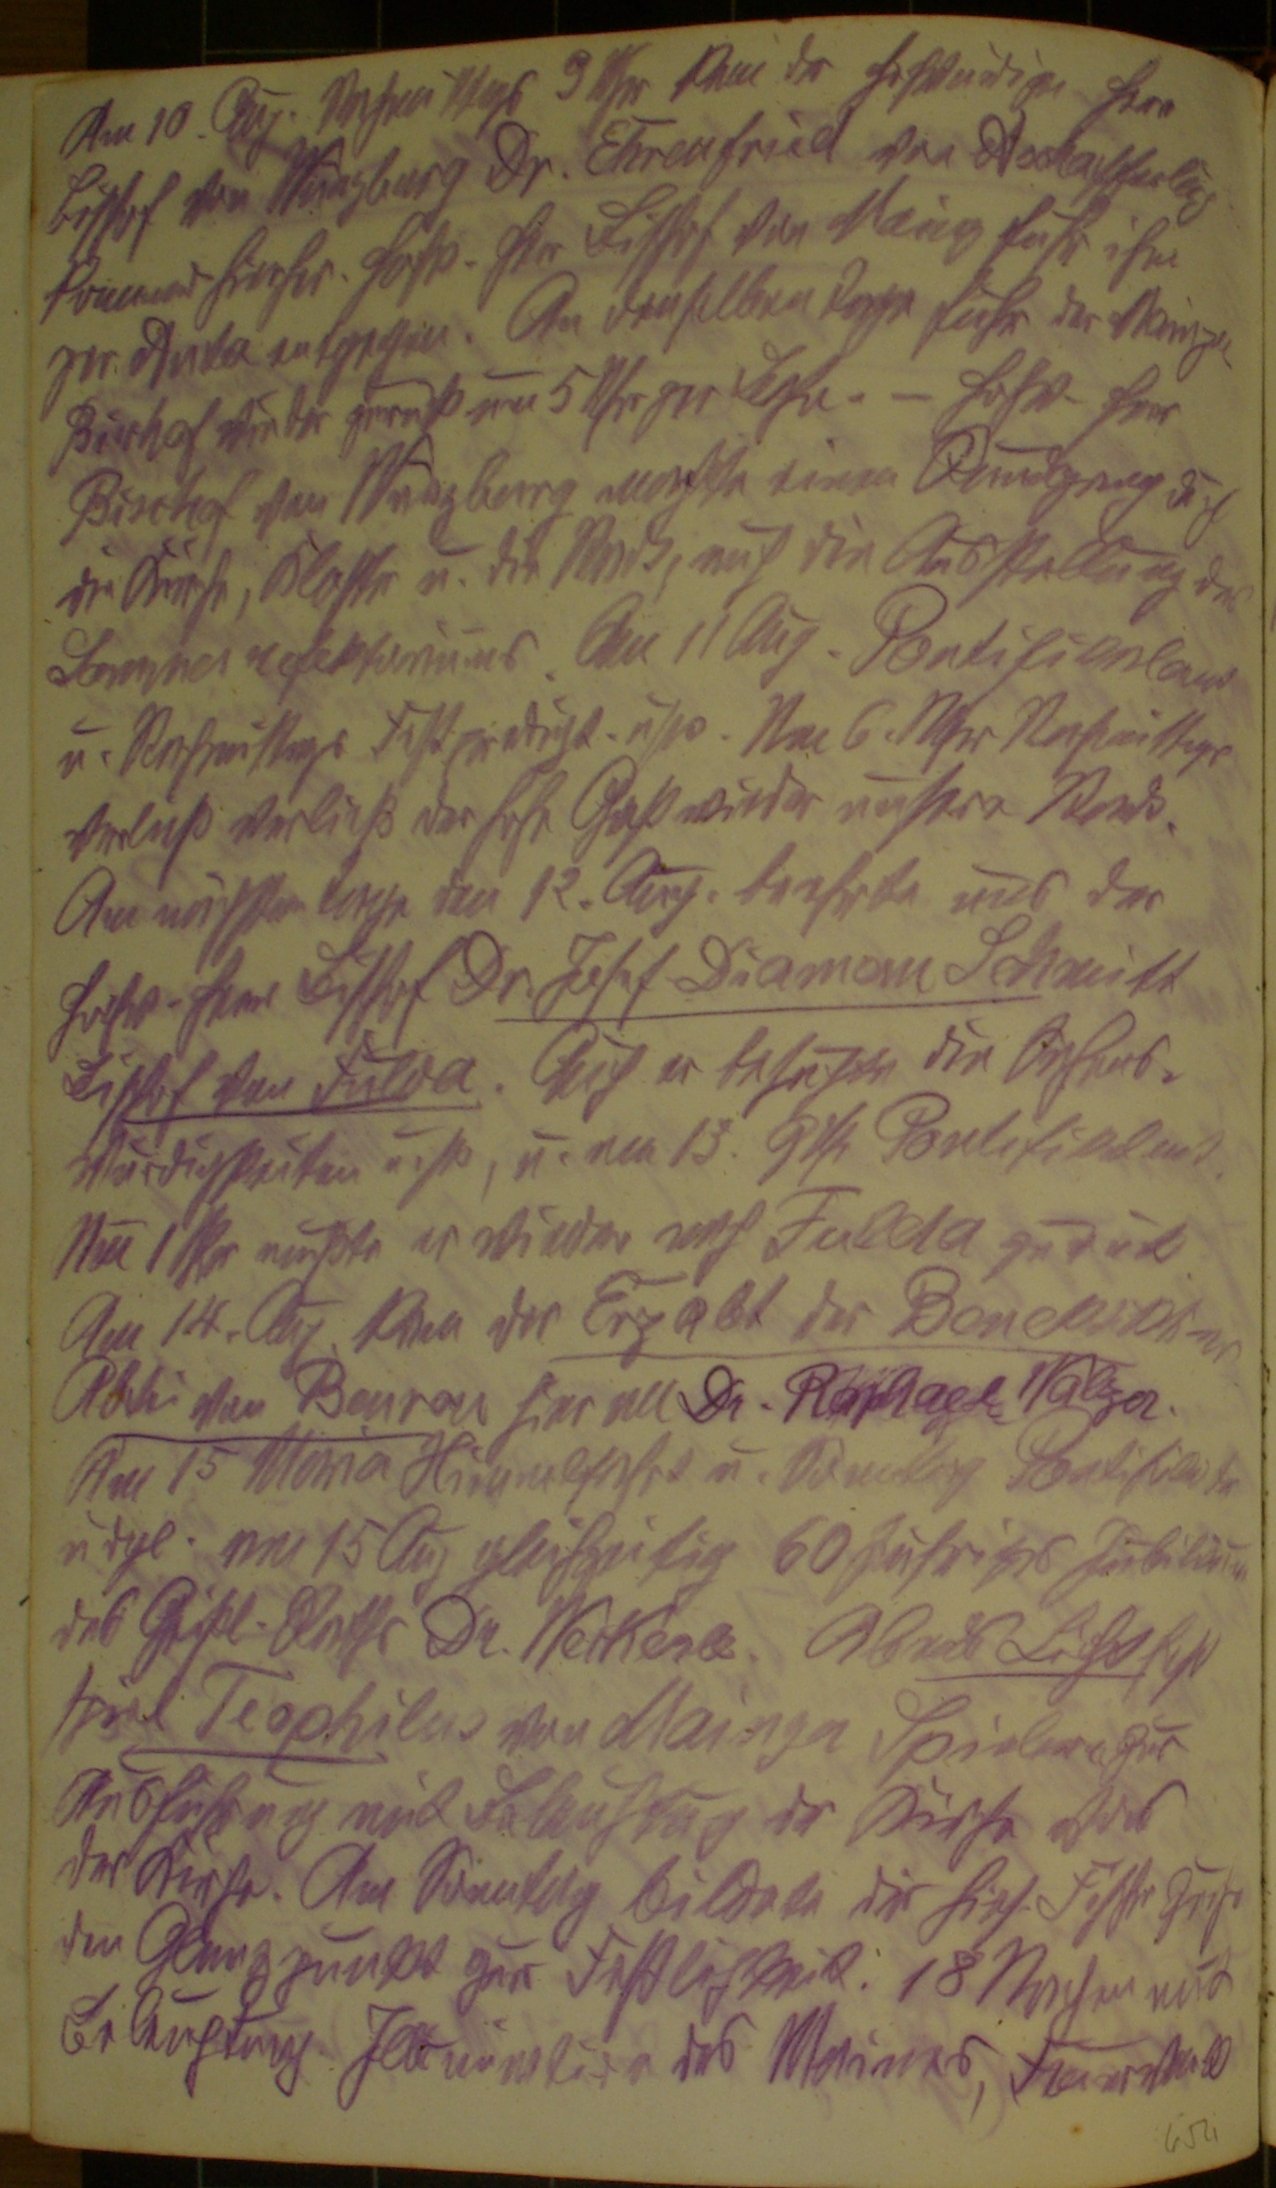 Am 10. Aug. Nachmittags 3 Uhr kam der hochwürdige Herr
Bischof von Würzburg Dr. Ehrenfried von Aschaffenburg
kommend hierher. Hochw. Herr Bischof von Mainz fuhr ihm
per Auto entgegen. An demselben Tage fuhr der Mainzer
Bischof wieder zurück um 5 Uhr per Bahn. — Hochw. Herr
Bischof von Würzburg machte einen Rundgang durch
die Kirche, Kloster u. die Stadt, auch die Ausstellung des
Sommerrefektoriums. Am 11 Aug. Pontifikalamt
u. Nachmittags Festpredigt. usw. Um 6 Uhr Nachmittags
verließ verließ der hohe Gast wieder unsere Stadt.
Am nächsten Tage den 12. Aug. beehrte uns der
hochw. Herr Bischof Dr. Josef Damian Schmitt
Bischof von Fulda. Auch er besuchte die Sehens-
würdigkeiten usw, u. am 13. Pontifikalamt.
Um 1 Uhr mußte er wieder nach Fulda zurück
Am 14. Aug. kam der Erzabt der Benediktiner
Abtei von Beuron hier an Dr. Raphael Walzer.
Am 15 Maria Himmelfahrt u. Sonntag
udgl. am 15 Aug gleichzeitig 60 jähriges Jubiläum
des Geistl. Raths Dr. Abends Licht
spiel Teophilus von Mainzer Spielern zur
Ausführung mit Beleuchtung der Kirche
der Kirche. Am Sonntag bildete die hies.
den Glanzpunkt zur Festlichkeit. 18 Nachen mit
Beleuchtung. des Maines, Feuerwerk
654